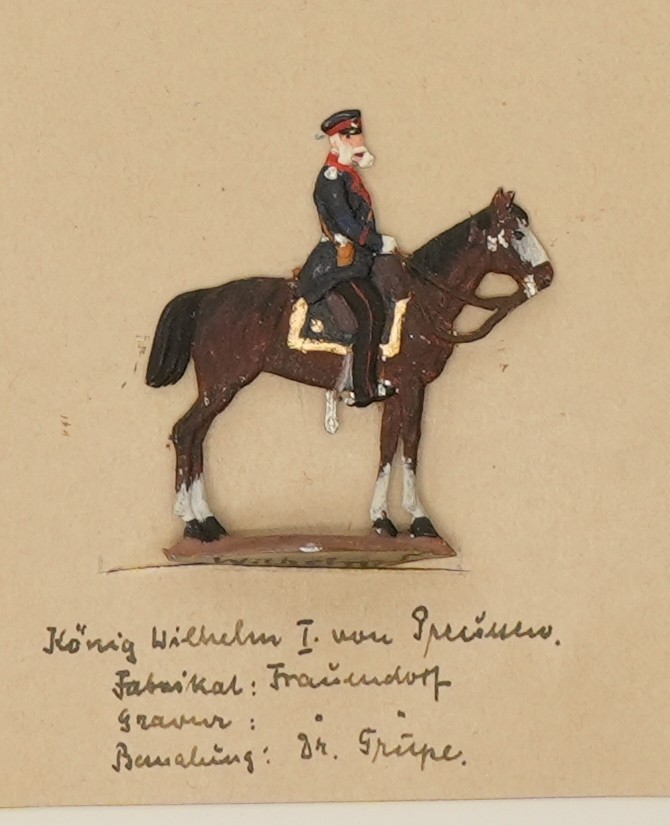 Wilhelm I
König Wilhelm I. von Preussen.
Fabrikat: Frauendorf
Gravur: "
Bemalung: Dr. Grüpe.